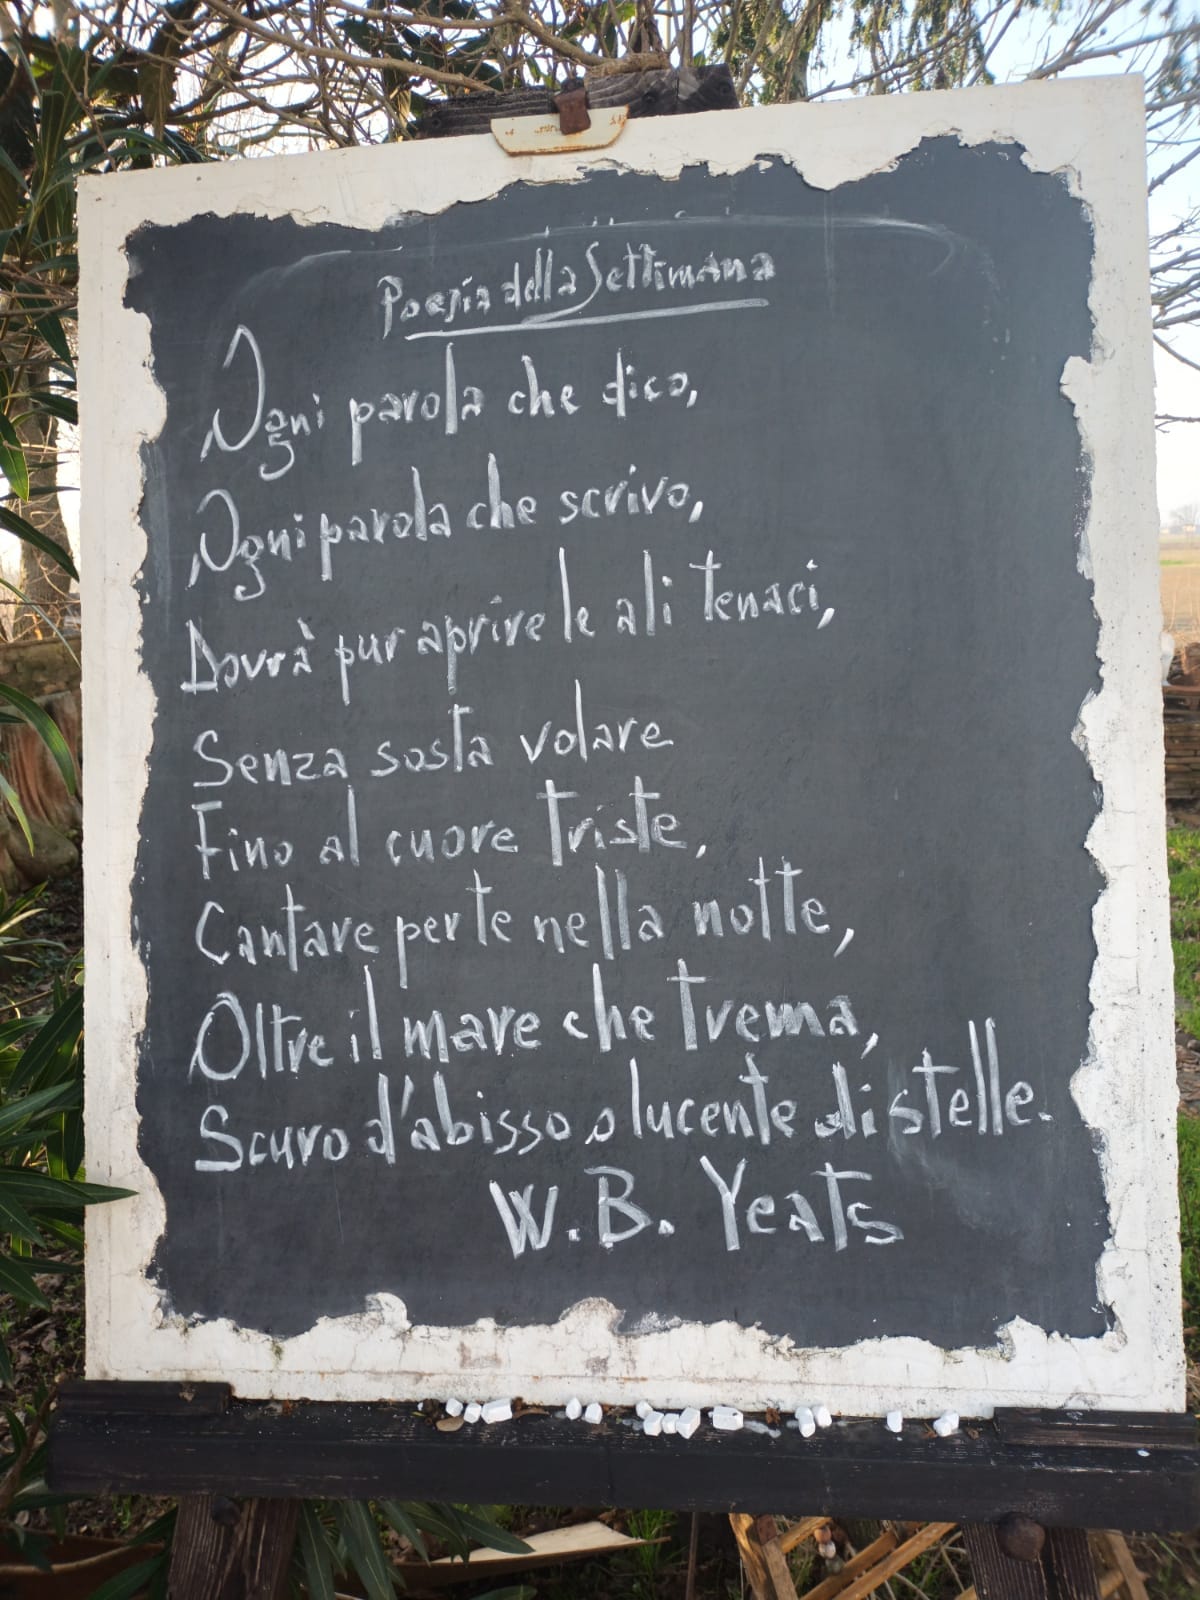 Poesia della Settimana
Ogni parola che dico,
Ogni parola che scrivo,
Dovrà pur aprire le ali tenaci,
Senza sosta volare
Fino al cuore triste,
Cantare per te nella notte,
Oltre il mare che trema,
Scuro d'abisso o lucente di stelle.
W.B. Yeats